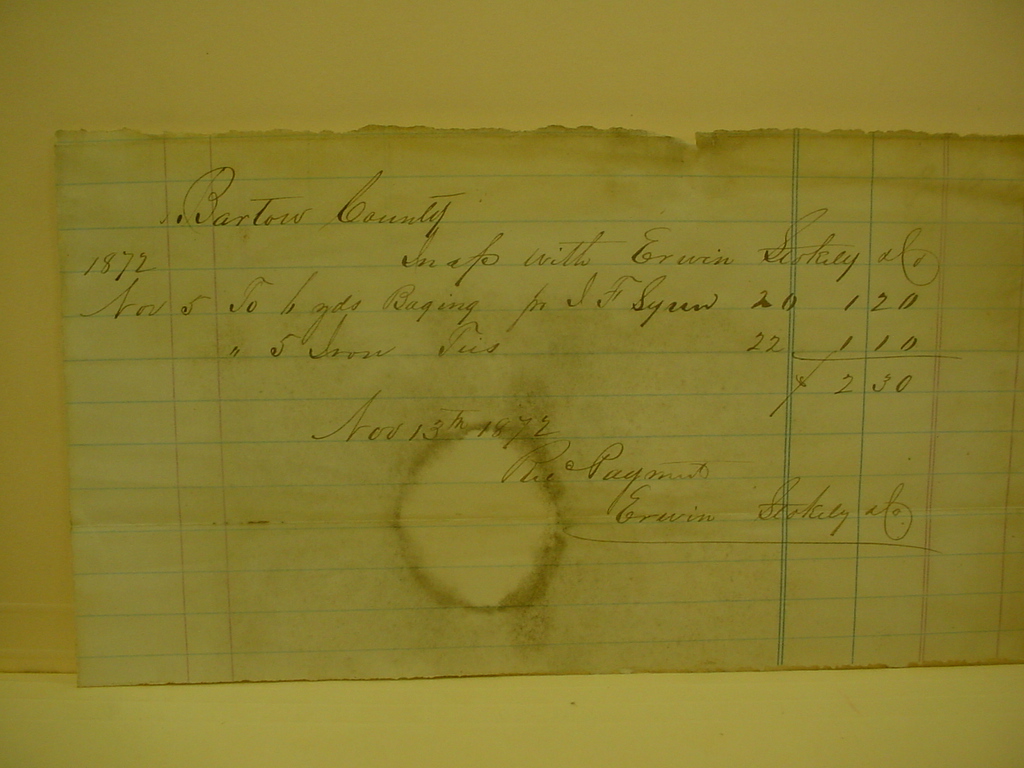 Bartow County
1872 In a/c with Erwin Stokely & Co
Nov 5 To 6 yds Baging pr J F 20 1 20
" 5 Iron Ties 22 1 10
$ 2 30
Nov 13th 1872
Rec Paymnt
Erwin Stokely & Co